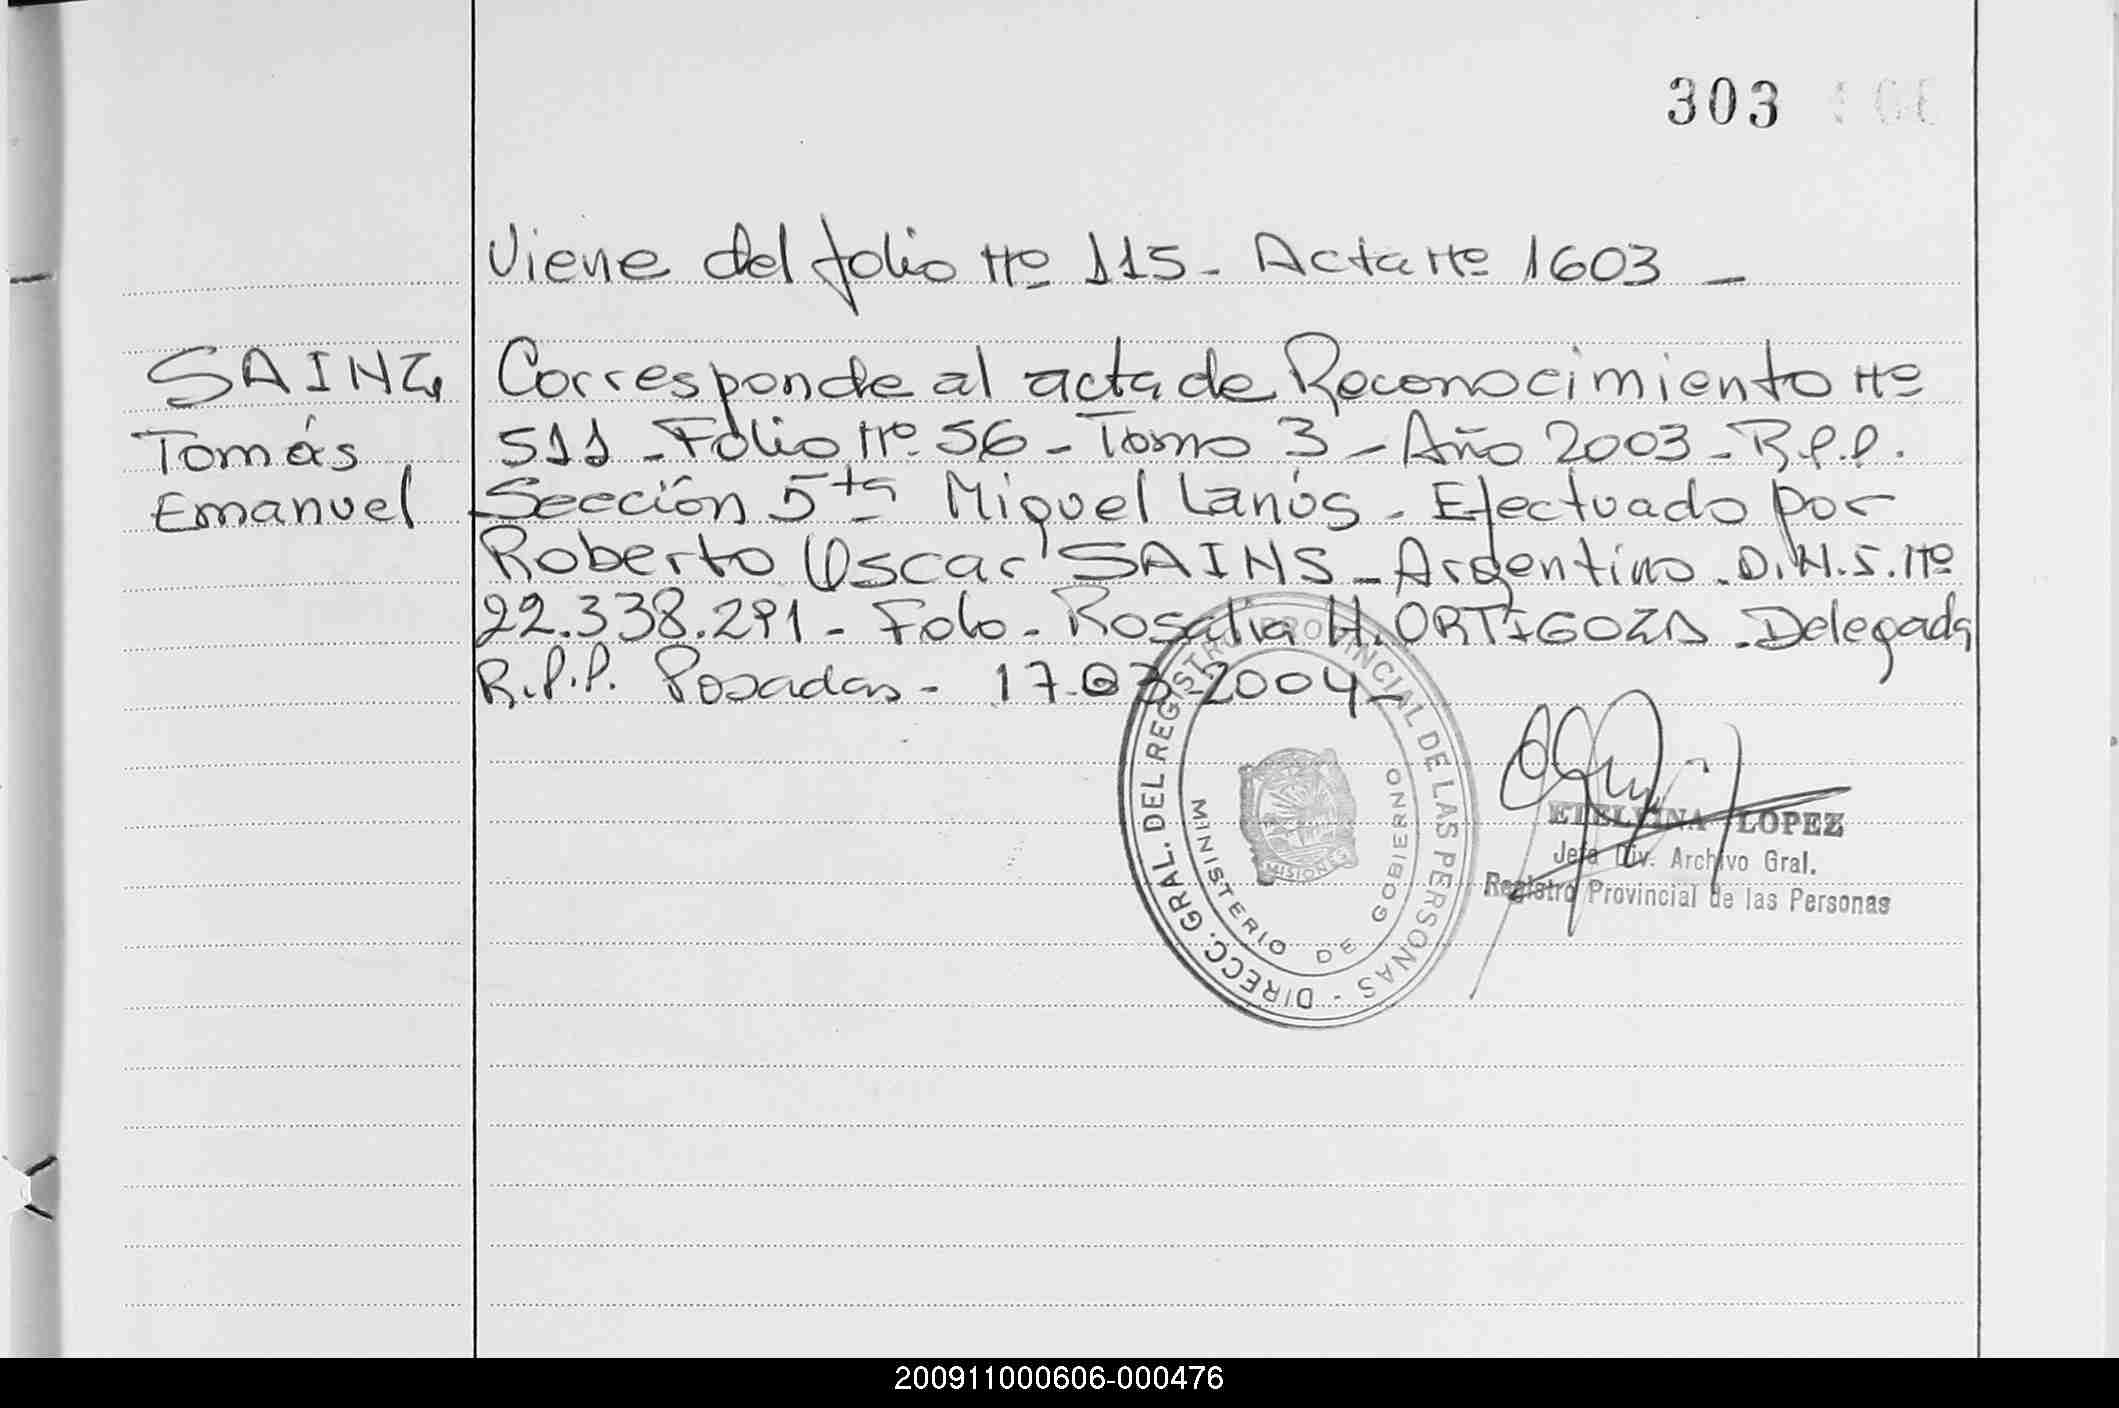 303
Viene del folio Nº 115 - Acta Nº 1603 -
SAINZ, Corresponde al acta de Reconocimiento Nº
Tomás 511 - Folio Nº 56 - Tomo 3 - Año 2003 - R.P.P.
Emanuel Sección 5ta Miguel Lanús - Efectuado por
Roberto Oscar SAINS - Argentino - D.N.I. Nº
22.338.291 - Fdo - Rosalia H. ORTIGOZA - Delegada
R.P.P. Posadas - 17-03-2004 -
DIRECC. GRAL. DEL REGISTRO PROVINCIAL DE LAS PERSONAS -
MINISTERIO DE GOBIERNO
MISIONES
ETELVINA LOPEZ
Jefa Div. Archivo Gral.
Registro Provincial de las Personas
200911000606-000476